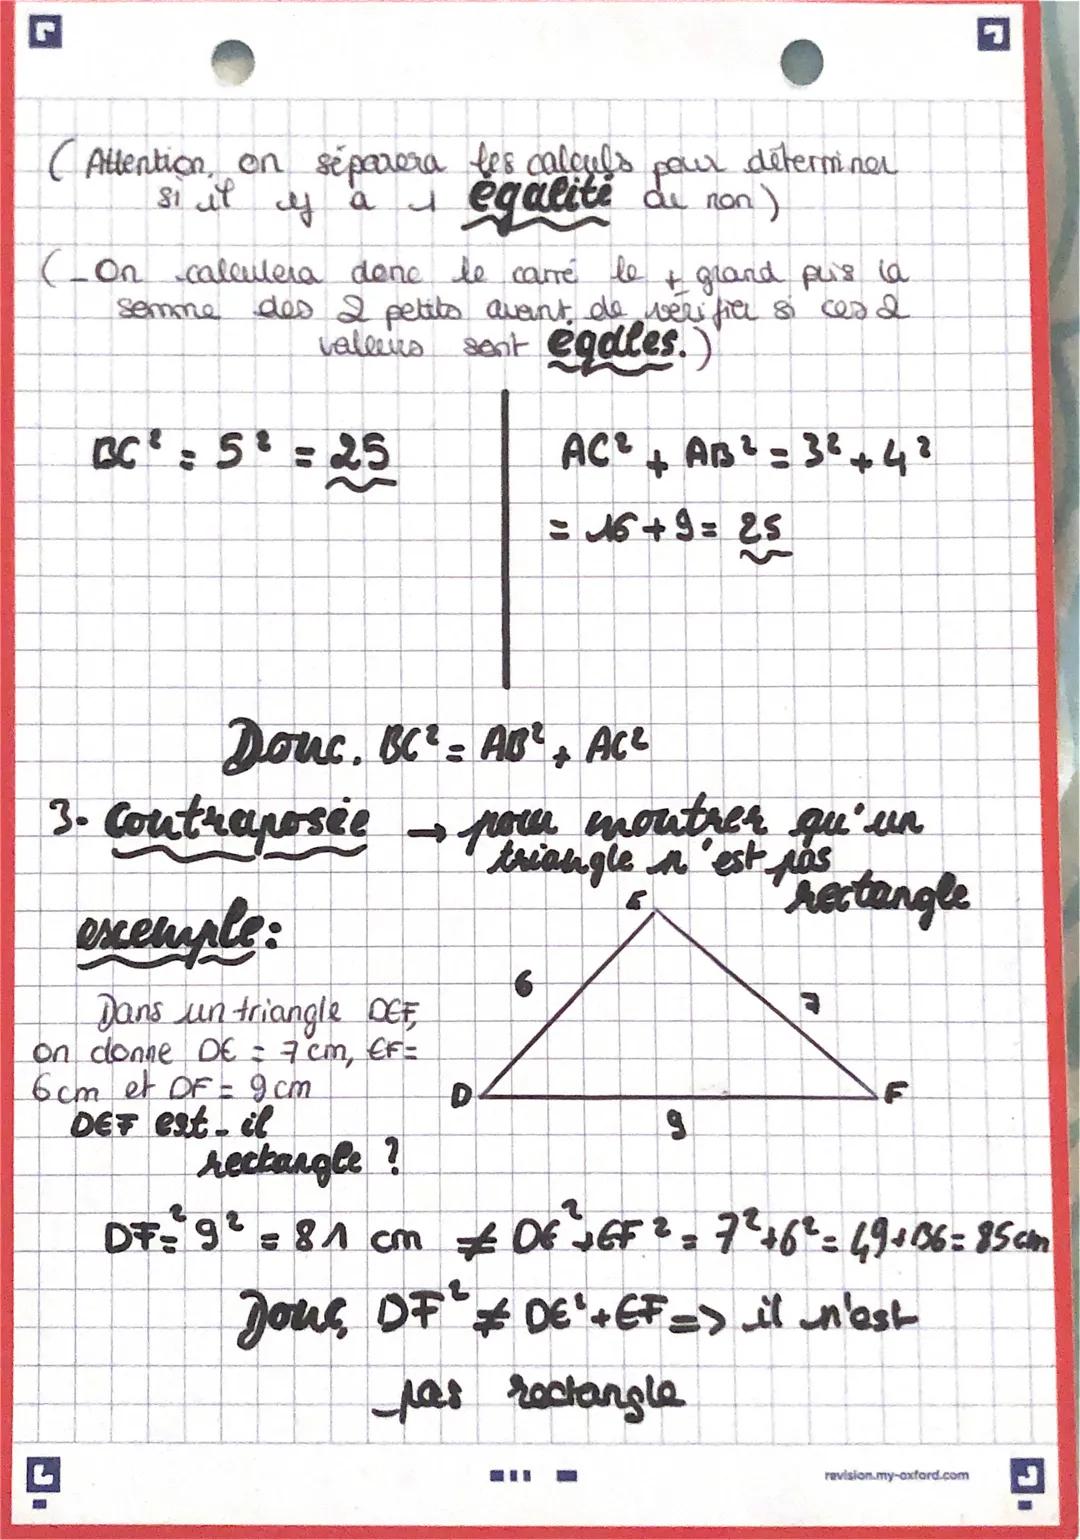 ( Attention, on séparera les calculs pour déterminer
si il y a 1 égalité ou non )
( - On calculera donc le carré le + grand puis la
somme des 2 petits avant de vérifier si ces 2
valeurs sont égales. )
BC² = 5² = 25
AC² + AB² = 3² + 4²
= 16 + 9 = 25
Donc. BC² = AB² + AC²
3- Contraposée → pour montrer qu'un
triangle n'est pas
rectangle
exemple:
E
6
7
D
F
9
Dans un triangle DEF,
on donne DE = 7 cm, EF =
6 cm et DF = 9 cm
DEF est-il
rectangle ?
DF² = 9² = 81 cm ≠ DE² + EF² = 7² + 6² = 49 + 36 = 85 cm
Donc, DF² ≠ DE² + EF => il n'est
pas rectangle
revision.my-oxford.com